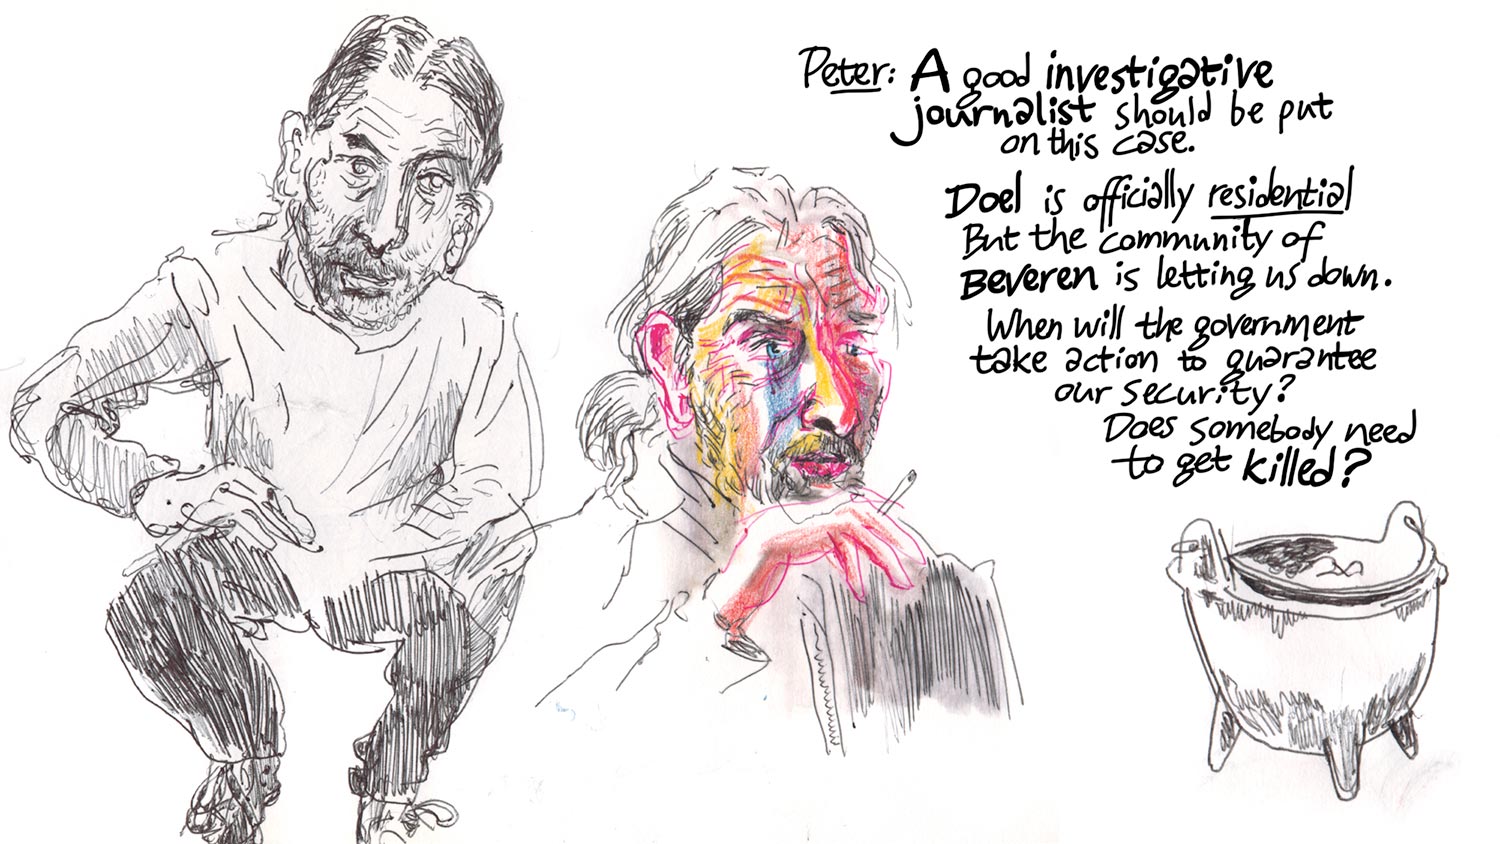 Peter: A good investigative
journalist should be put
on this case.
Doel is officially residential
But the community of
Beveren is letting us down.
When will the government
take action to guarantee
our security?
Does somebody need
to get killed?